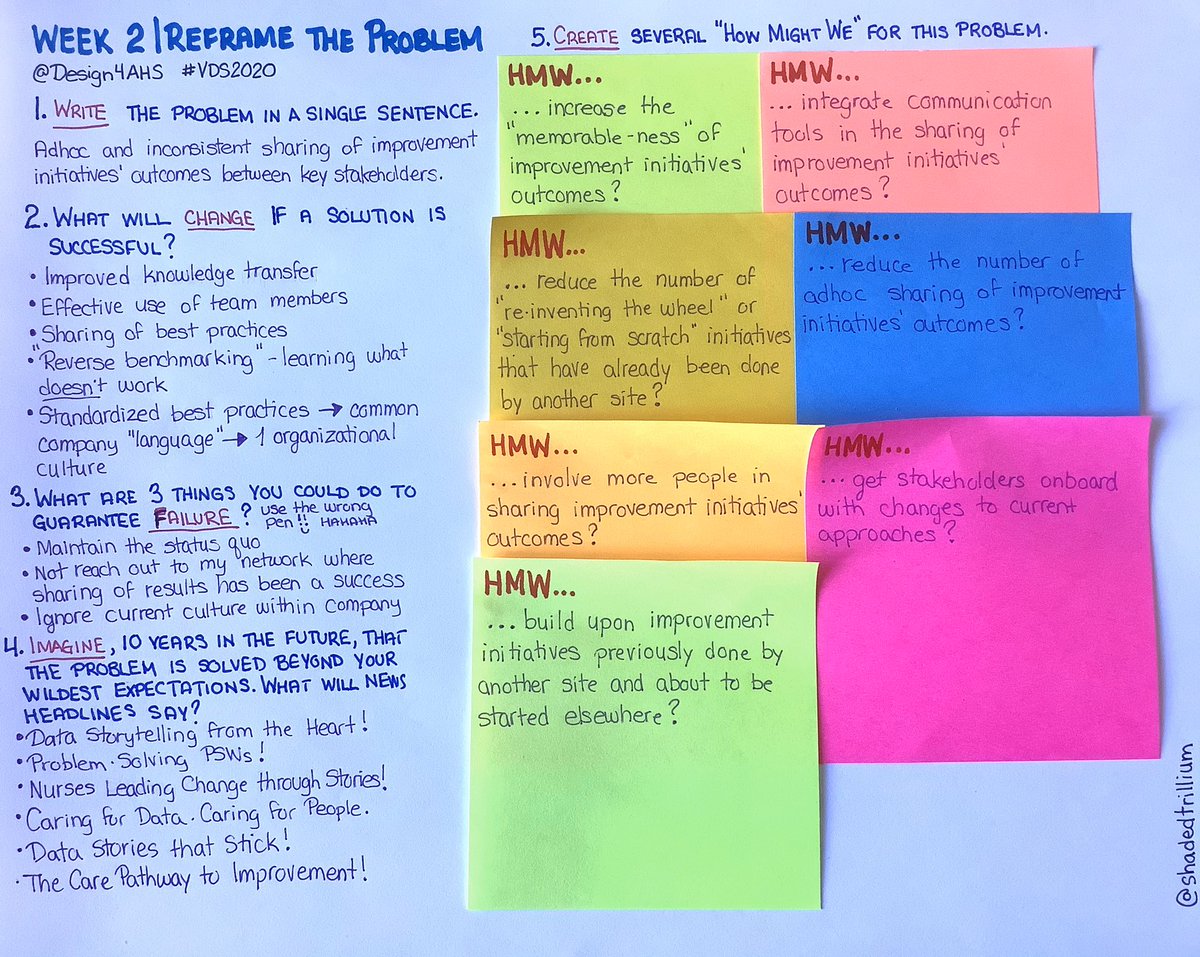 WEEK 2 | REFRAME THE PROBLEM
@Design4AHS #VDS2020
1. WRITE THE PROBLEM IN A SINGLE SENTENCE.
Adhoc and inconsistent sharing of improvement
initiatives' outcomes between key stakeholders.
2. WHAT WILL CHANGE IF A SOLUTION IS
SUCCESSFUL?
• Improved knowledge transfer
• Effective use of team members
• Sharing of best practices
• "Reverse benchmarking" - learning what
doesn't work
• Standardized best practices → common
company "language" → 1 organizational
culture
3. WHAT ARE 3 THINGS YOU COULD DO TO
GUARANTEE FAILURE? use the wrong
pen!! HAHAHA
• Maintain the status quo
• Not reach out to my network where
sharing of results has been a success
• Ignore current culture within company
4. IMAGINE, 10 YEARS IN THE FUTURE, THAT
THE PROBLEM IS SOLVED BEYOND YOUR
WILDEST EXPECTATIONS. WHAT WILL NEWS
HEADLINES SAY?
• Data Storytelling from the Heart!
• Problem-Solving PSWs!
• Nurses Leading Change through Stories!
• Caring for Data. Caring for People.
• Data Stories that Stick!
• The Care Pathway to Improvement!
5. CREATE SEVERAL "HOW MIGHT WE" FOR THIS PROBLEM.
HMW...
...increase the
"memorable-ness" of
improvement initiatives'
outcomes?
HMW...
...integrate communication
tools in the sharing of
improvement initiatives'
outcomes?
HMW...
...reduce the number of
"re-inventing the wheel" or
"starting from scratch" initiatives
that have already been done
by another site?
HMW...
...reduce the number of
adhoc sharing of improvement
initiatives' outcomes?
HMW...
...involve more people in
sharing improvement initiatives'
outcomes?
HMW...
...get stakeholders onboard
with changes to current
approaches?
HMW...
...build upon improvement
initiatives previously done by
another site and about to be
started elsewhere?
@shadedtrillium